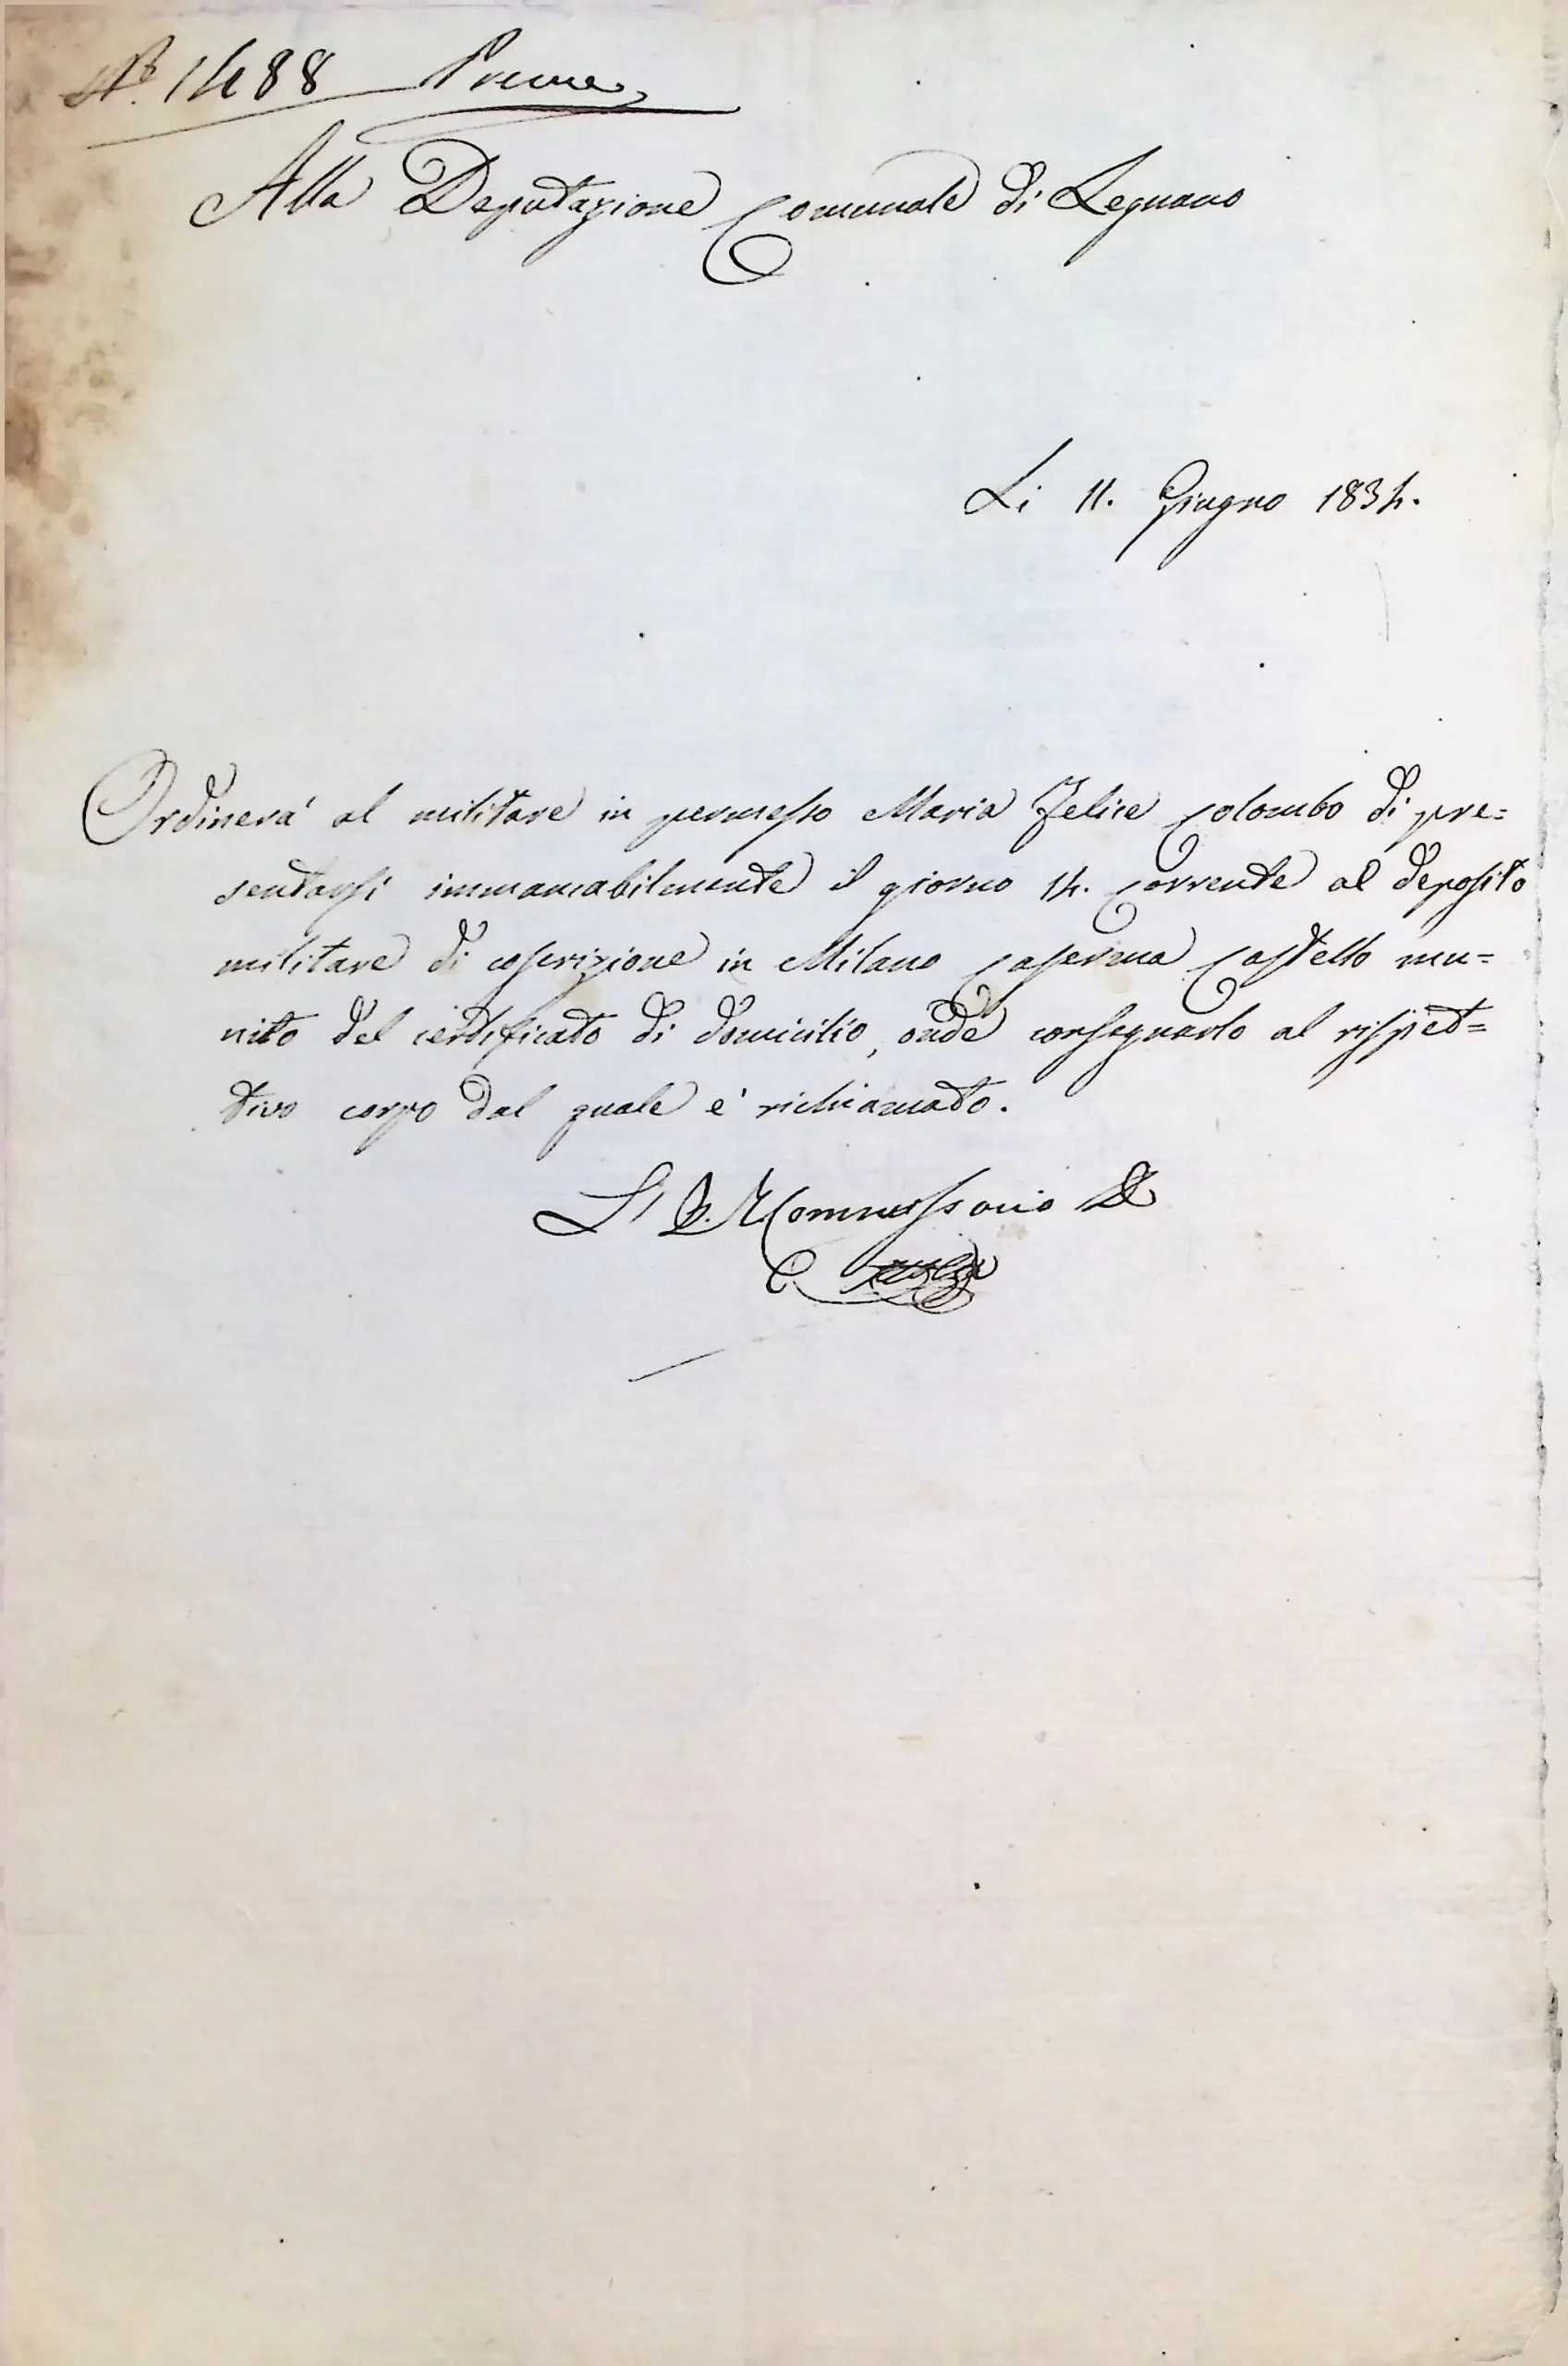 N.º 1488 Preme
Alla Deputazione Comunale di Legnano
Li 11. Giugno 1834.
Ordinerà al militare in permesso Maria Felice Colombo di pre=
sentarsi immancabilmente il giorno 14. corrente al deposito
militare di coscrizione in Milano Caserma Castello mu=
nito del certificato di domicilio, onde consegnarlo al rispet=
tivo corpo dal quale è richiamato.
L'I. R. Commissario D